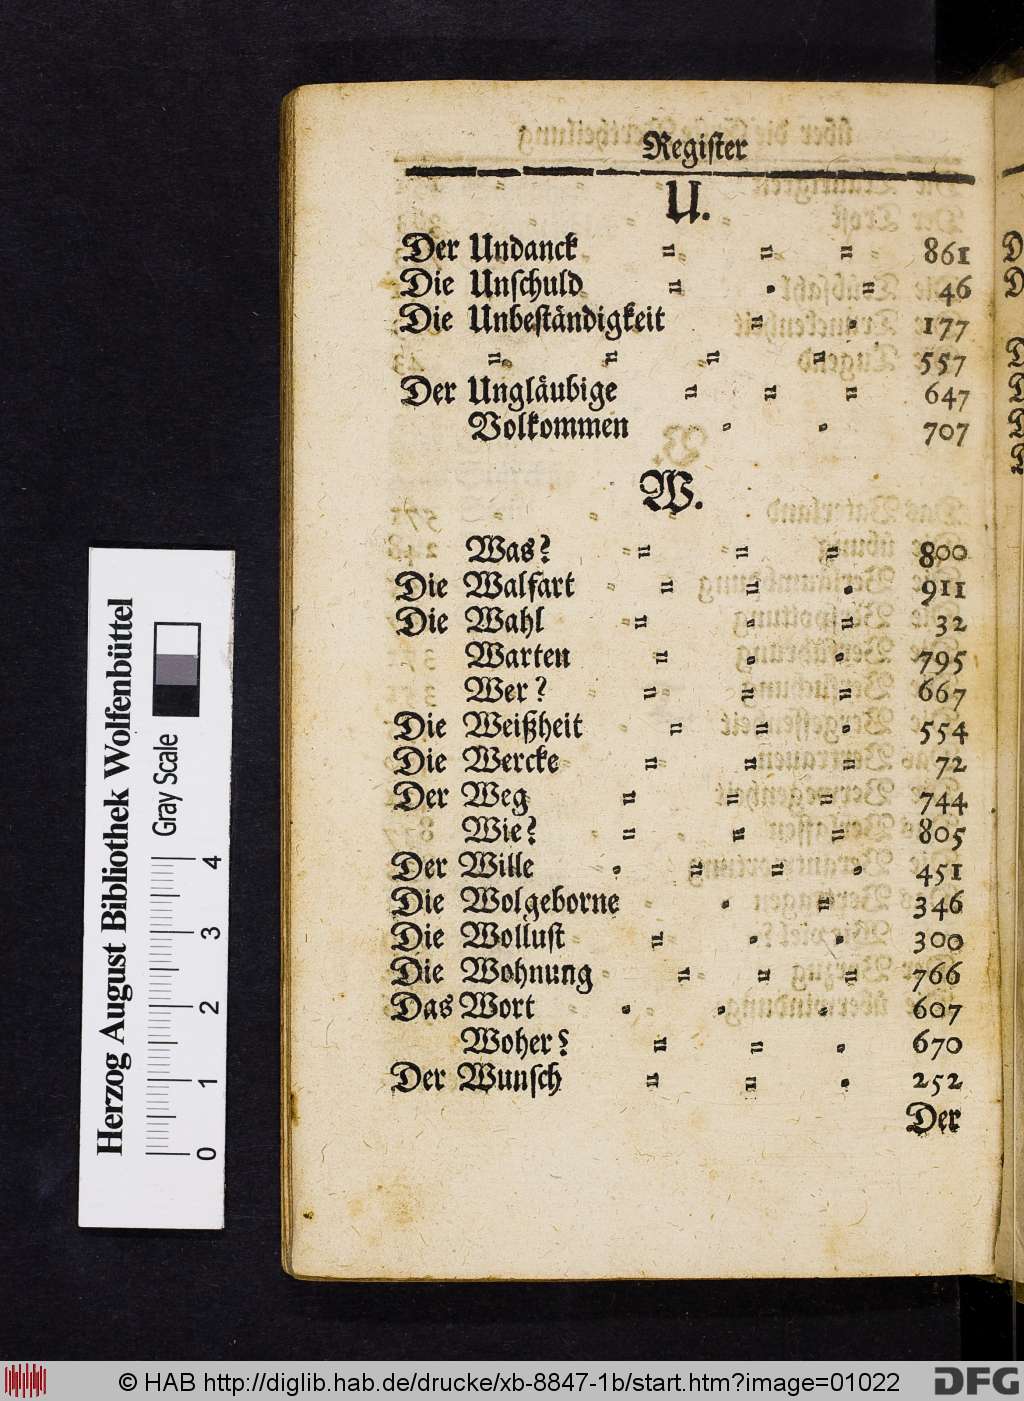 Register
U.
Der Undanck 861
Die Unschuld 46
Die Unbeständigkeit 177
557
Der Ungläubige 647
Volkommen 707
W.
Was? 800
Die Walfart 911
Die Wahl 32
Warten 795
Wer? 667
Die Weißheit 554
Die Wercke 72
Der Weg 744
Wie? 805
Der Wille 451
Die Wolgeborne 346
Die Wollust 300
Die Wohnung 766
Das Wort 607
Woher? 670
Der Wunsch 252
Der
Herzog August Bibliothek Wolfenbüttel
Gray Scale
0 1 2 3 4
© HAB http://diglib.hab.de/drucke/xb-8847-1b/start.htm?image=01022
DFG